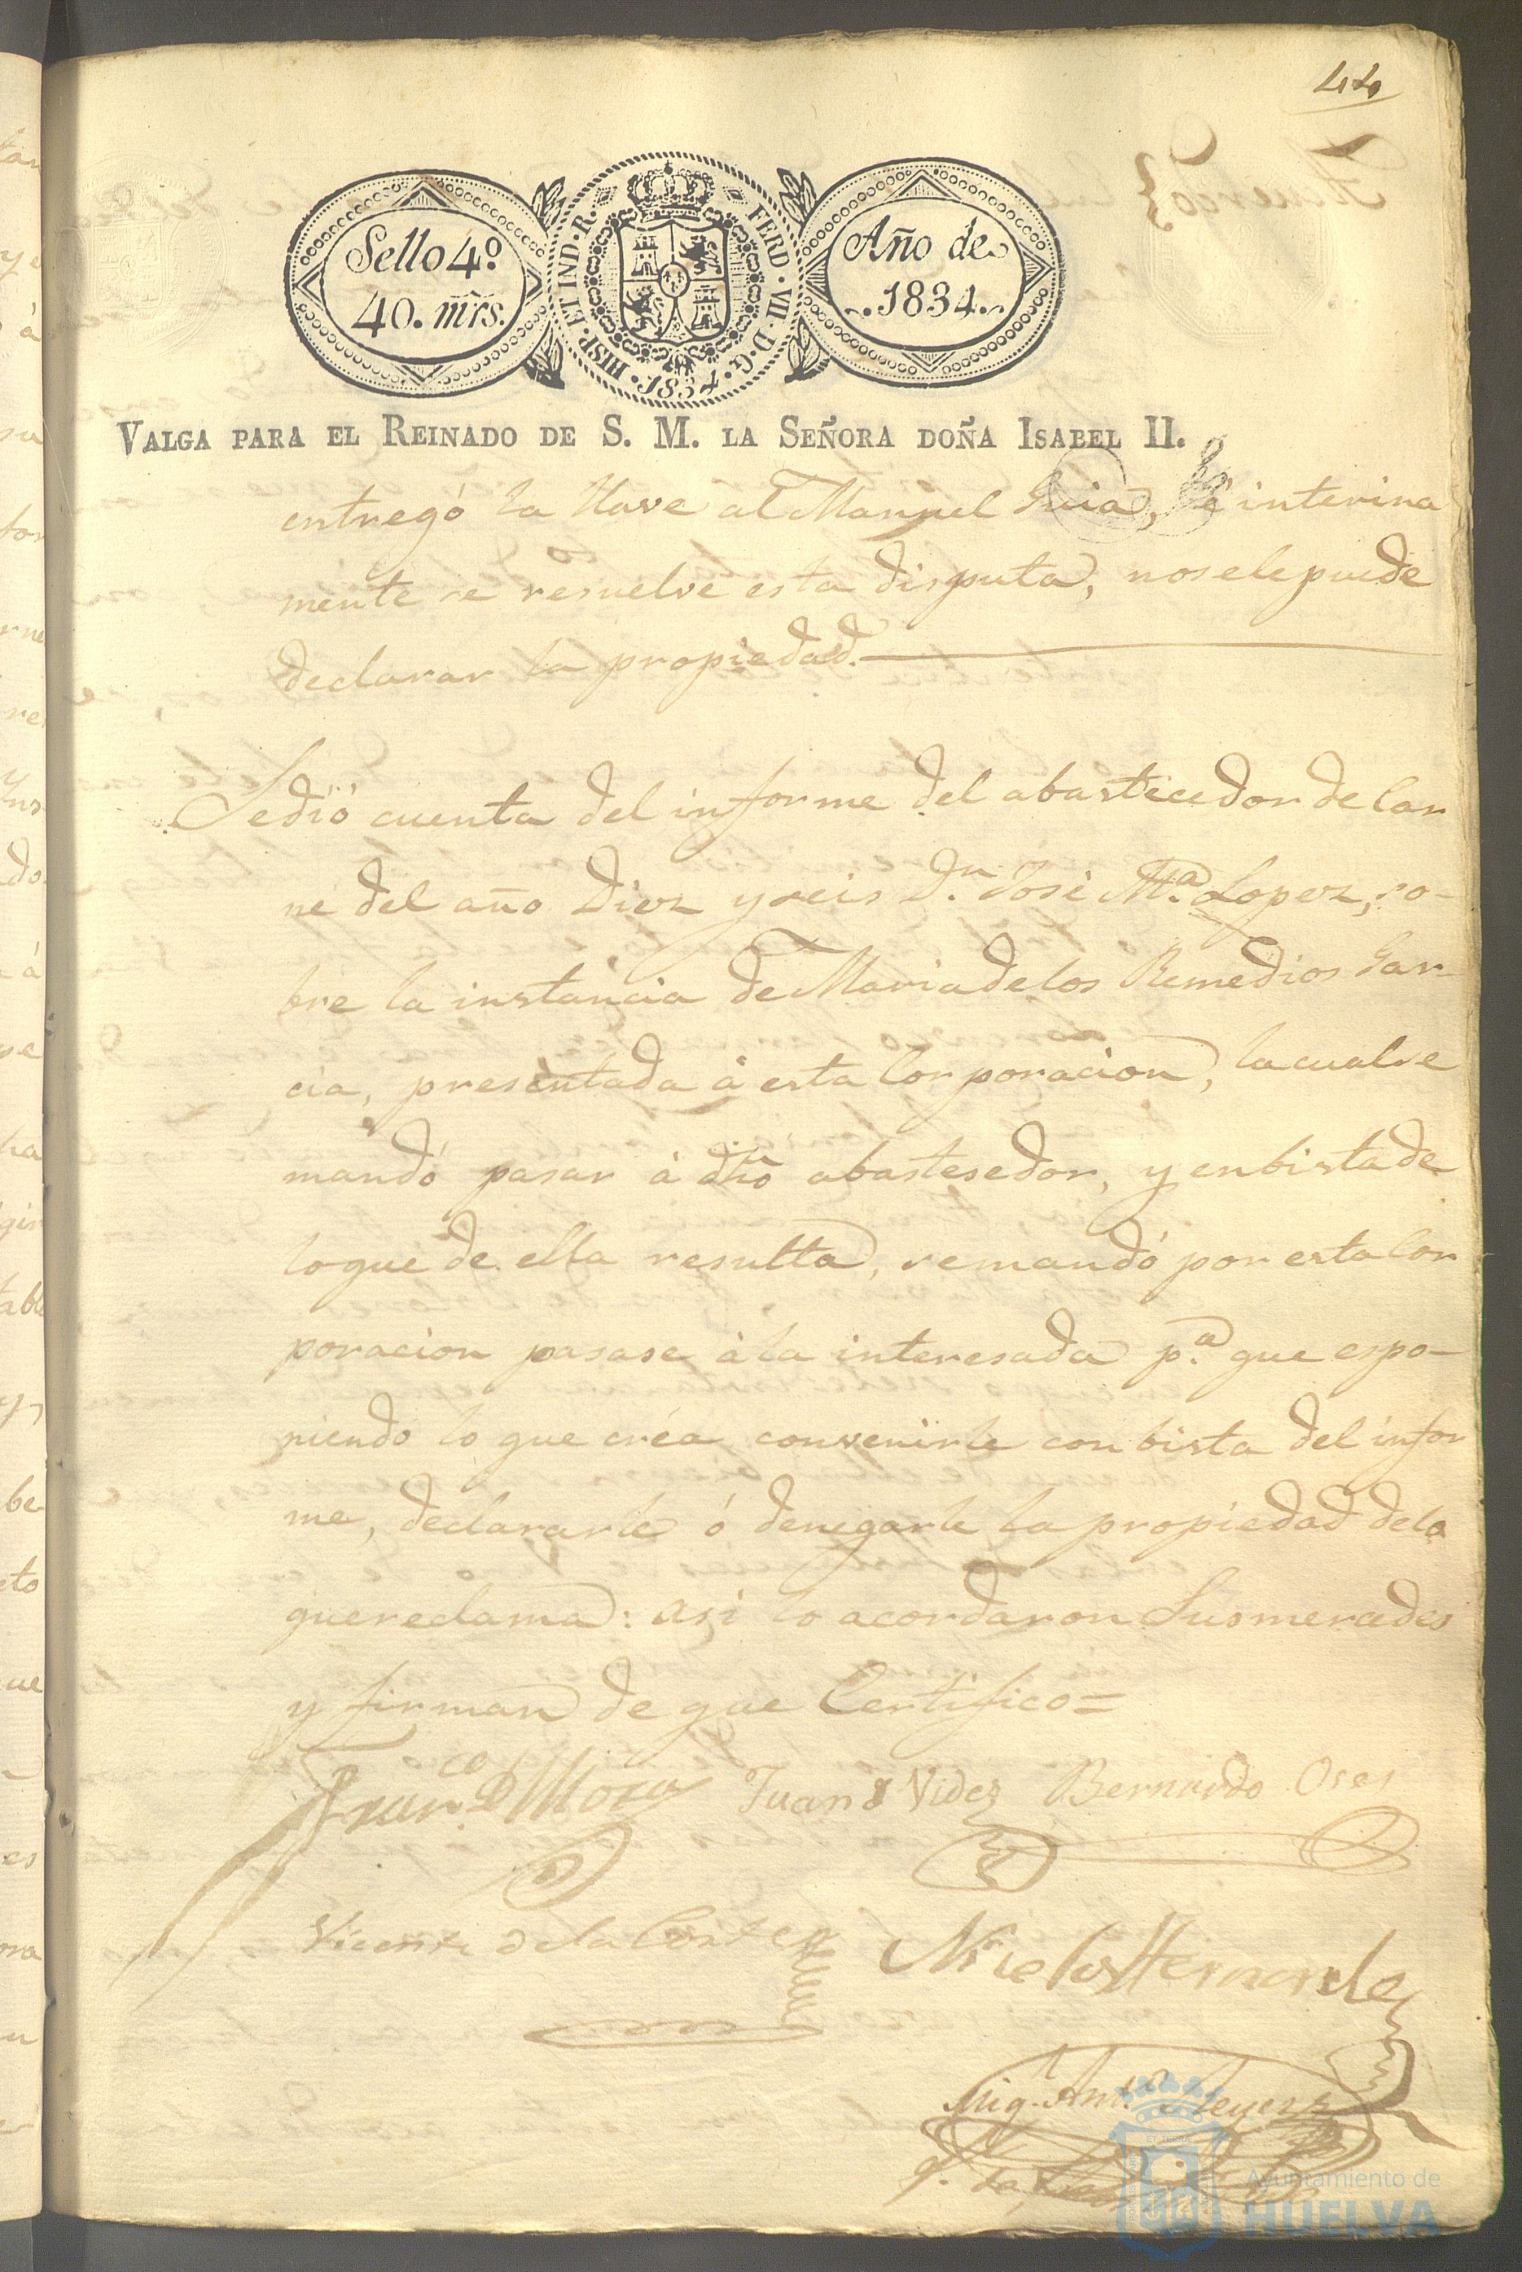 44
Sello 4º
40. mrs.
HISP. ET IND. R. FERD. VII. D. G. 1834.
Año de
1834.
VALGA PARA EL REINADO DE S. M. LA SEÑORA DOÑA ISABEL II.
entregó la llave al Manuel Guia, é interina
mente se resuelve esta disputa, nosele puede
declarar la propiedad.
Sedió cuenta del informe del abastecedor de Car
ne del año Diez y seis D.n José M.a Lopez, so-
bre la instancia de Maria de los Remedios Gar-
cia, presentada á esta Corporacion, la cual se
mandó pasar á dho abastesedor, y enbista de
loque de ella resulta, semandó por esta Cor
poracion pasase á la interesada p.a que espo-
niendo lo que créa convenirle con bista del infor
me, declararle ó denegarle la propiedad dela
quereclama: asi lo acordaron Susmercedes
y firman de que Certifico =
Fran.co Mora Juan Videz Bernardo Oses
Vicente de la Corte Nicolas Hernandez
Mig. Ant.o Reyes
Ayuntamiento de
HUELVA